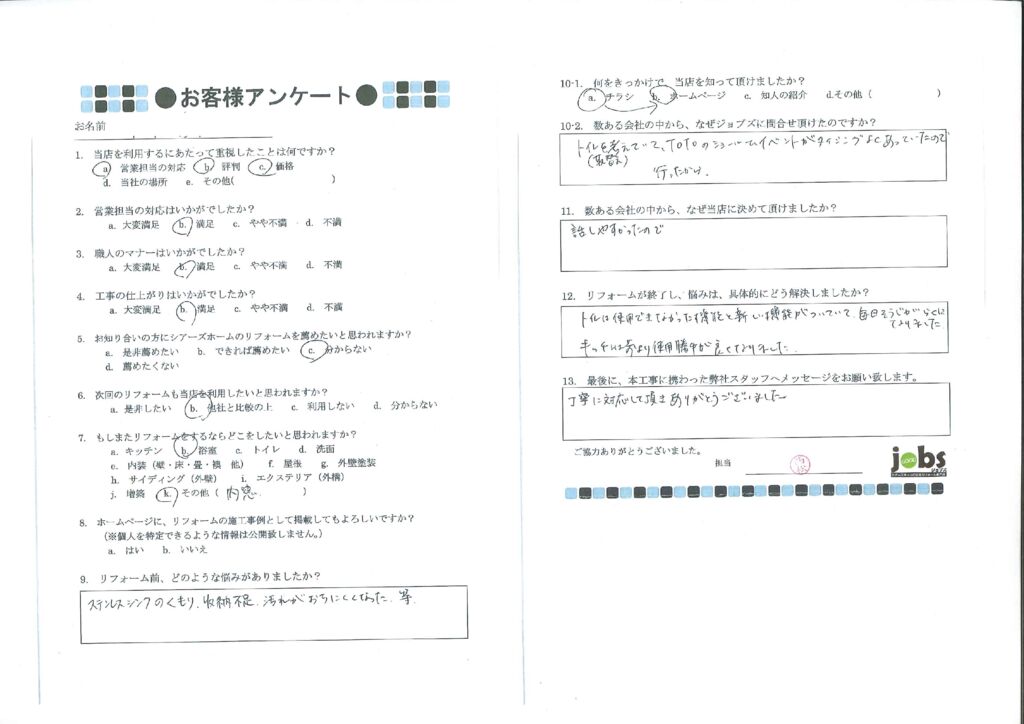 ●お客様アンケート●
お名前
1. 当店を利用するにあたって重視したことは何ですか？
a. 営業担当の対応 b. 評判 c. 価格
d. 当社の場所 e. その他( )
2. 営業担当の対応はいかがでしたか？
a. 大変満足 b. 満足 c. やや不満 d. 不満
3. 職人のマナーはいかがでしたか？
a. 大変満足 b. 満足 c. やや不満 d. 不満
4. 工事の仕上がりはいかがでしたか？
a. 大変満足 b. 満足 c. やや不満 d. 不満
5. お知り合いの方にシアーズホームのリフォームを薦めたいと思われますか？
a. 是非薦めたい b. できれば薦めたい c. 分からない
d. 薦めたくない
6. 次回のリフォームも当店を利用したいと思われますか？
a. 是非したい b. 他社と比較の上 c. 利用しない d. 分からない
7. もしまたリフォームをするならどこをしたいと思われますか？
a. キッチン b. 浴室 c. トイレ d. 洗面
e. 内装（壁・床・畳・襖 他） f. 屋根 g. 外壁塗装
h. サイディング（外壁） i. エクステリア（外構）
j. 増築 k. その他（ 内窓 ）
8. ホームページに、リフォームの施工事例として掲載してもよろしいですか？
（※個人を特定できるような情報は公開致しません。）
a. はい b. いいえ
9. リフォーム前、どのような悩みがありましたか？
ステンレスシンクのくもり、収納不足、汚れがおちにくくなった 等
10-1. 何をきっかけで、当店を知って頂けましたか？
a. チラシ b. ホームページ c. 知人の紹介 d.その他（ ）
10-2. 数ある会社の中から、なぜジョブズに問合せ頂けたのですか？
トイレを考えていて、TOTOのショールームイベントがタイミングよくあっていたので
(取替え)
行ったから。
11. 数ある会社の中から、なぜ当店に決めて頂けましたか？
話しやすかったので
12. リフォームが終了し、悩みは、具体的にどう解決しましたか？
トイレは使用できなかった機能と新しい機能がついていて、毎日そうじがらくに
なりました
キッチンは前より使用勝手が良くなりました。
13. 最後に、本工事に携わった弊社スタッフへメッセージをお願い致します。
丁寧に対応して頂きありがとうございました
ご協力ありがとうございました。
担当
jobs